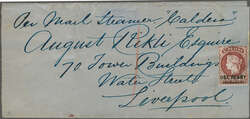 Per Mail Steamer "Caldera"
August Nickli Esquire
70 Tower Buildings
Water Street
Liverpool
ONE PENNY